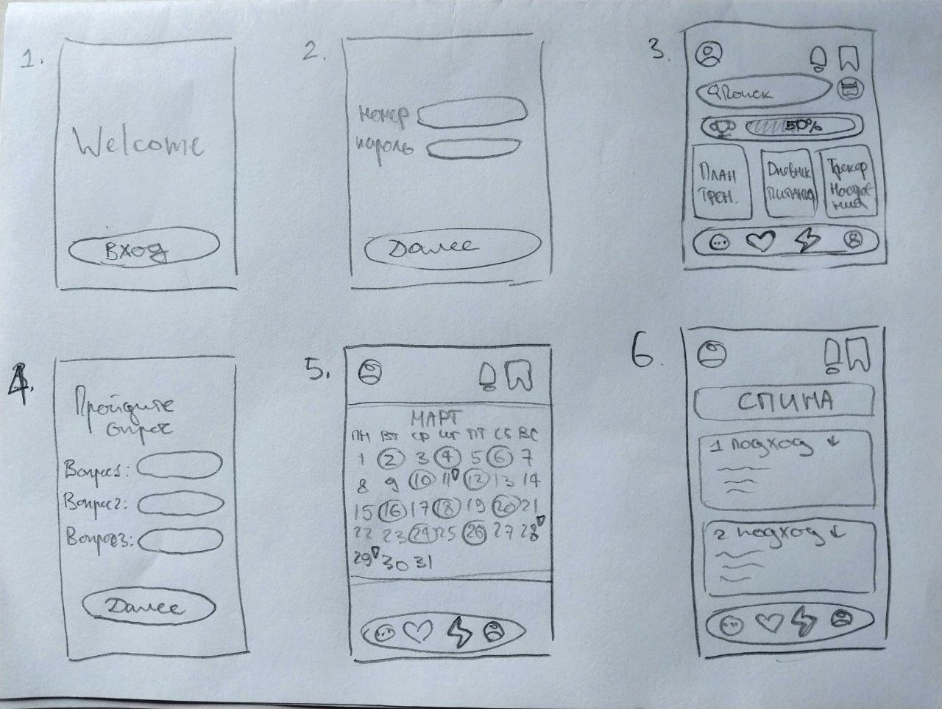 1.
Welcome
ВХОД
2.
номер
пароль
Далее
3.
Поиск
50%
ПЛАН
ТРЕН.
Дневник
Питания
Трекер
Настрое-
ния
4.
Пройдите
Опрос
Вопрос1:
Вопрос2:
Вопрос3:
Далее
5.
МАРТ
ПН ВТ СР ЧТ ПТ СБ ВС
1 2 3 4 5 6 7
8 9 10 11 12 13 14
15 16 17 18 19 20 21
22 23 24 25 26 27 28
29 30 31
6.
СПИНА
1 подход ↓
2 подход ↓